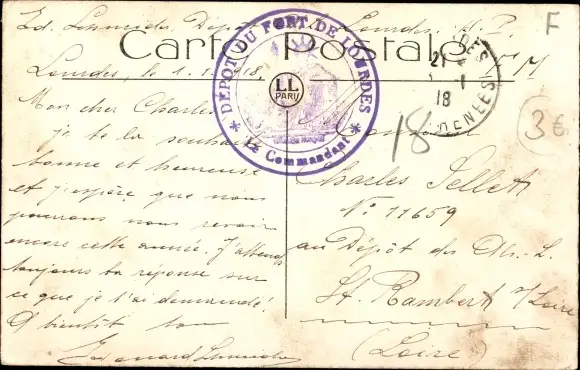 Ed. Schneider Dépôt Lourdes H. P.
Carte Postale
F. M
Lourdes, le 1. 1. 1918.
Mon cher Charles
je te la souhaite
bonne et heureuse
et j'espère que nous
pourrons nous revoir
encore cette année. J'attends
toujours ta réponse sur
ce que je t'ai demandé.
A bientôt ton
Edouard Schneider
DEPOT DU FORT DE LOURDES
* Le Commandant *
LL
PARIS
21
1
18
18
F
3€
Monsieur
Charles Sellet
N° 11659
au Dépôt des Als.-L.
St. Rambert s/Loire
(Loire)